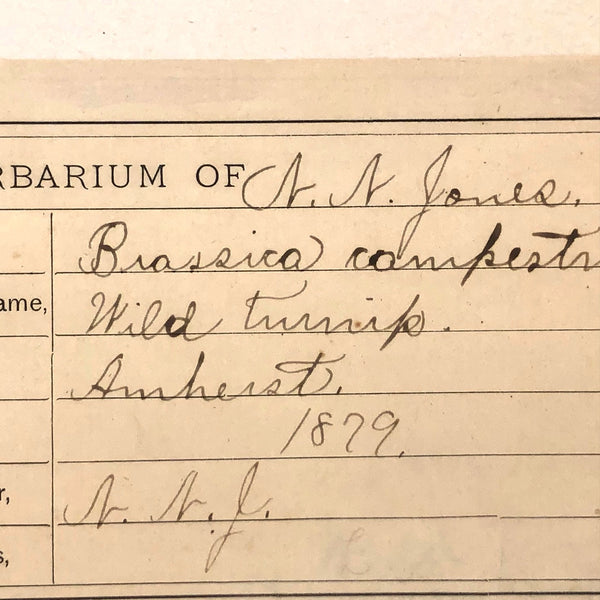 RBARIUM OF N. N. Jones.
Brassica campestr
ame, Wild turnip.
Amherst.
1879.
r, N. N. J.
s,